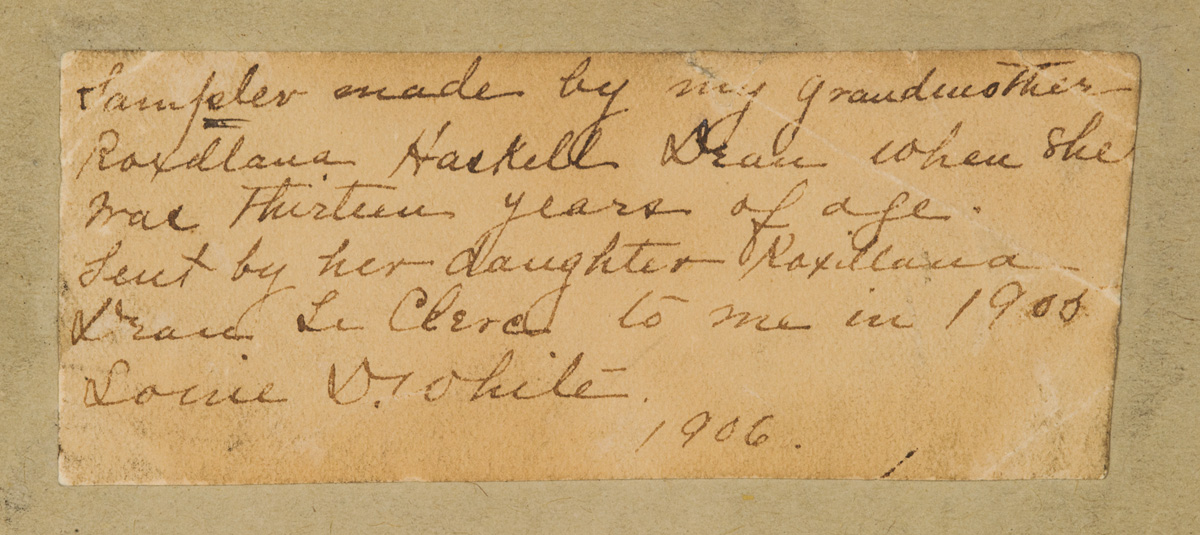 Sampler made by my grandmother
Roxdlana Haskell Dean when she
was Thirteen years of age.
Sent by her daughter Roxillana
Dean Le Clerc to me in 1900
Louie D. White.
1906.